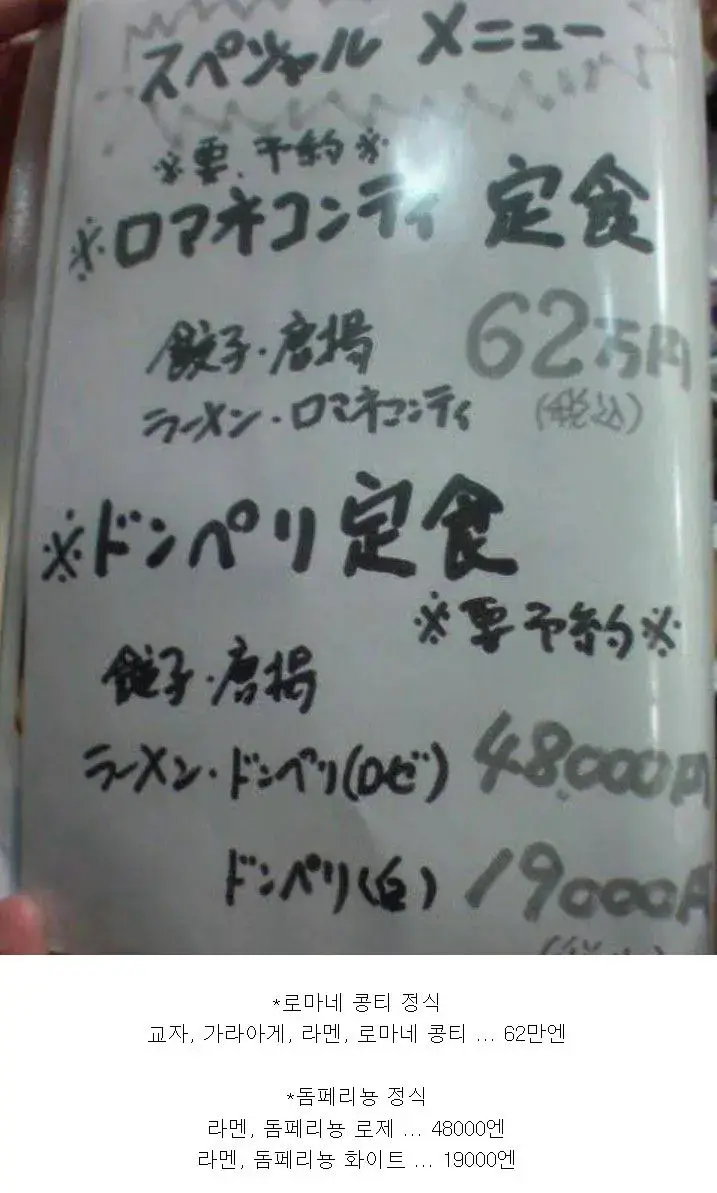 スペシャル メニュー
※要、予約※
※ロマネコンティ 定食
餃子・唐揚 62万円
ラーメン・ロマネコンティ (税込)
※ドンペリ 定食
※要予約※
餃子・唐揚
ラーメン・ドンペリ(ロゼ) 48,000円
ドンペリ(白) 19000円
*로마네 콩티 정식
교자, 가라아게, 라멘, 로마네 콩티 ... 62만엔
*돔페리뇽 정식
라멘, 돔페리뇽 로제 ... 48000엔
라멘, 돔페리뇽 화이트 ... 19000엔